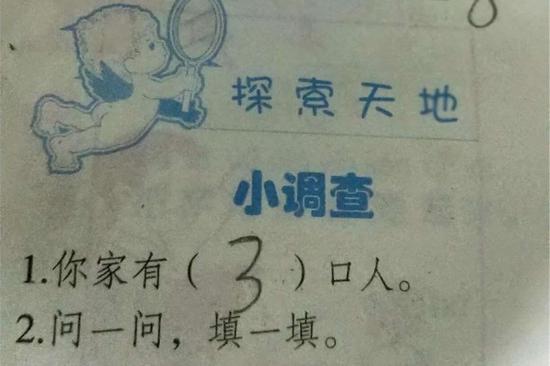 探索天地
小调查
1.你家有（3）口人。
2.问一问，填一填。